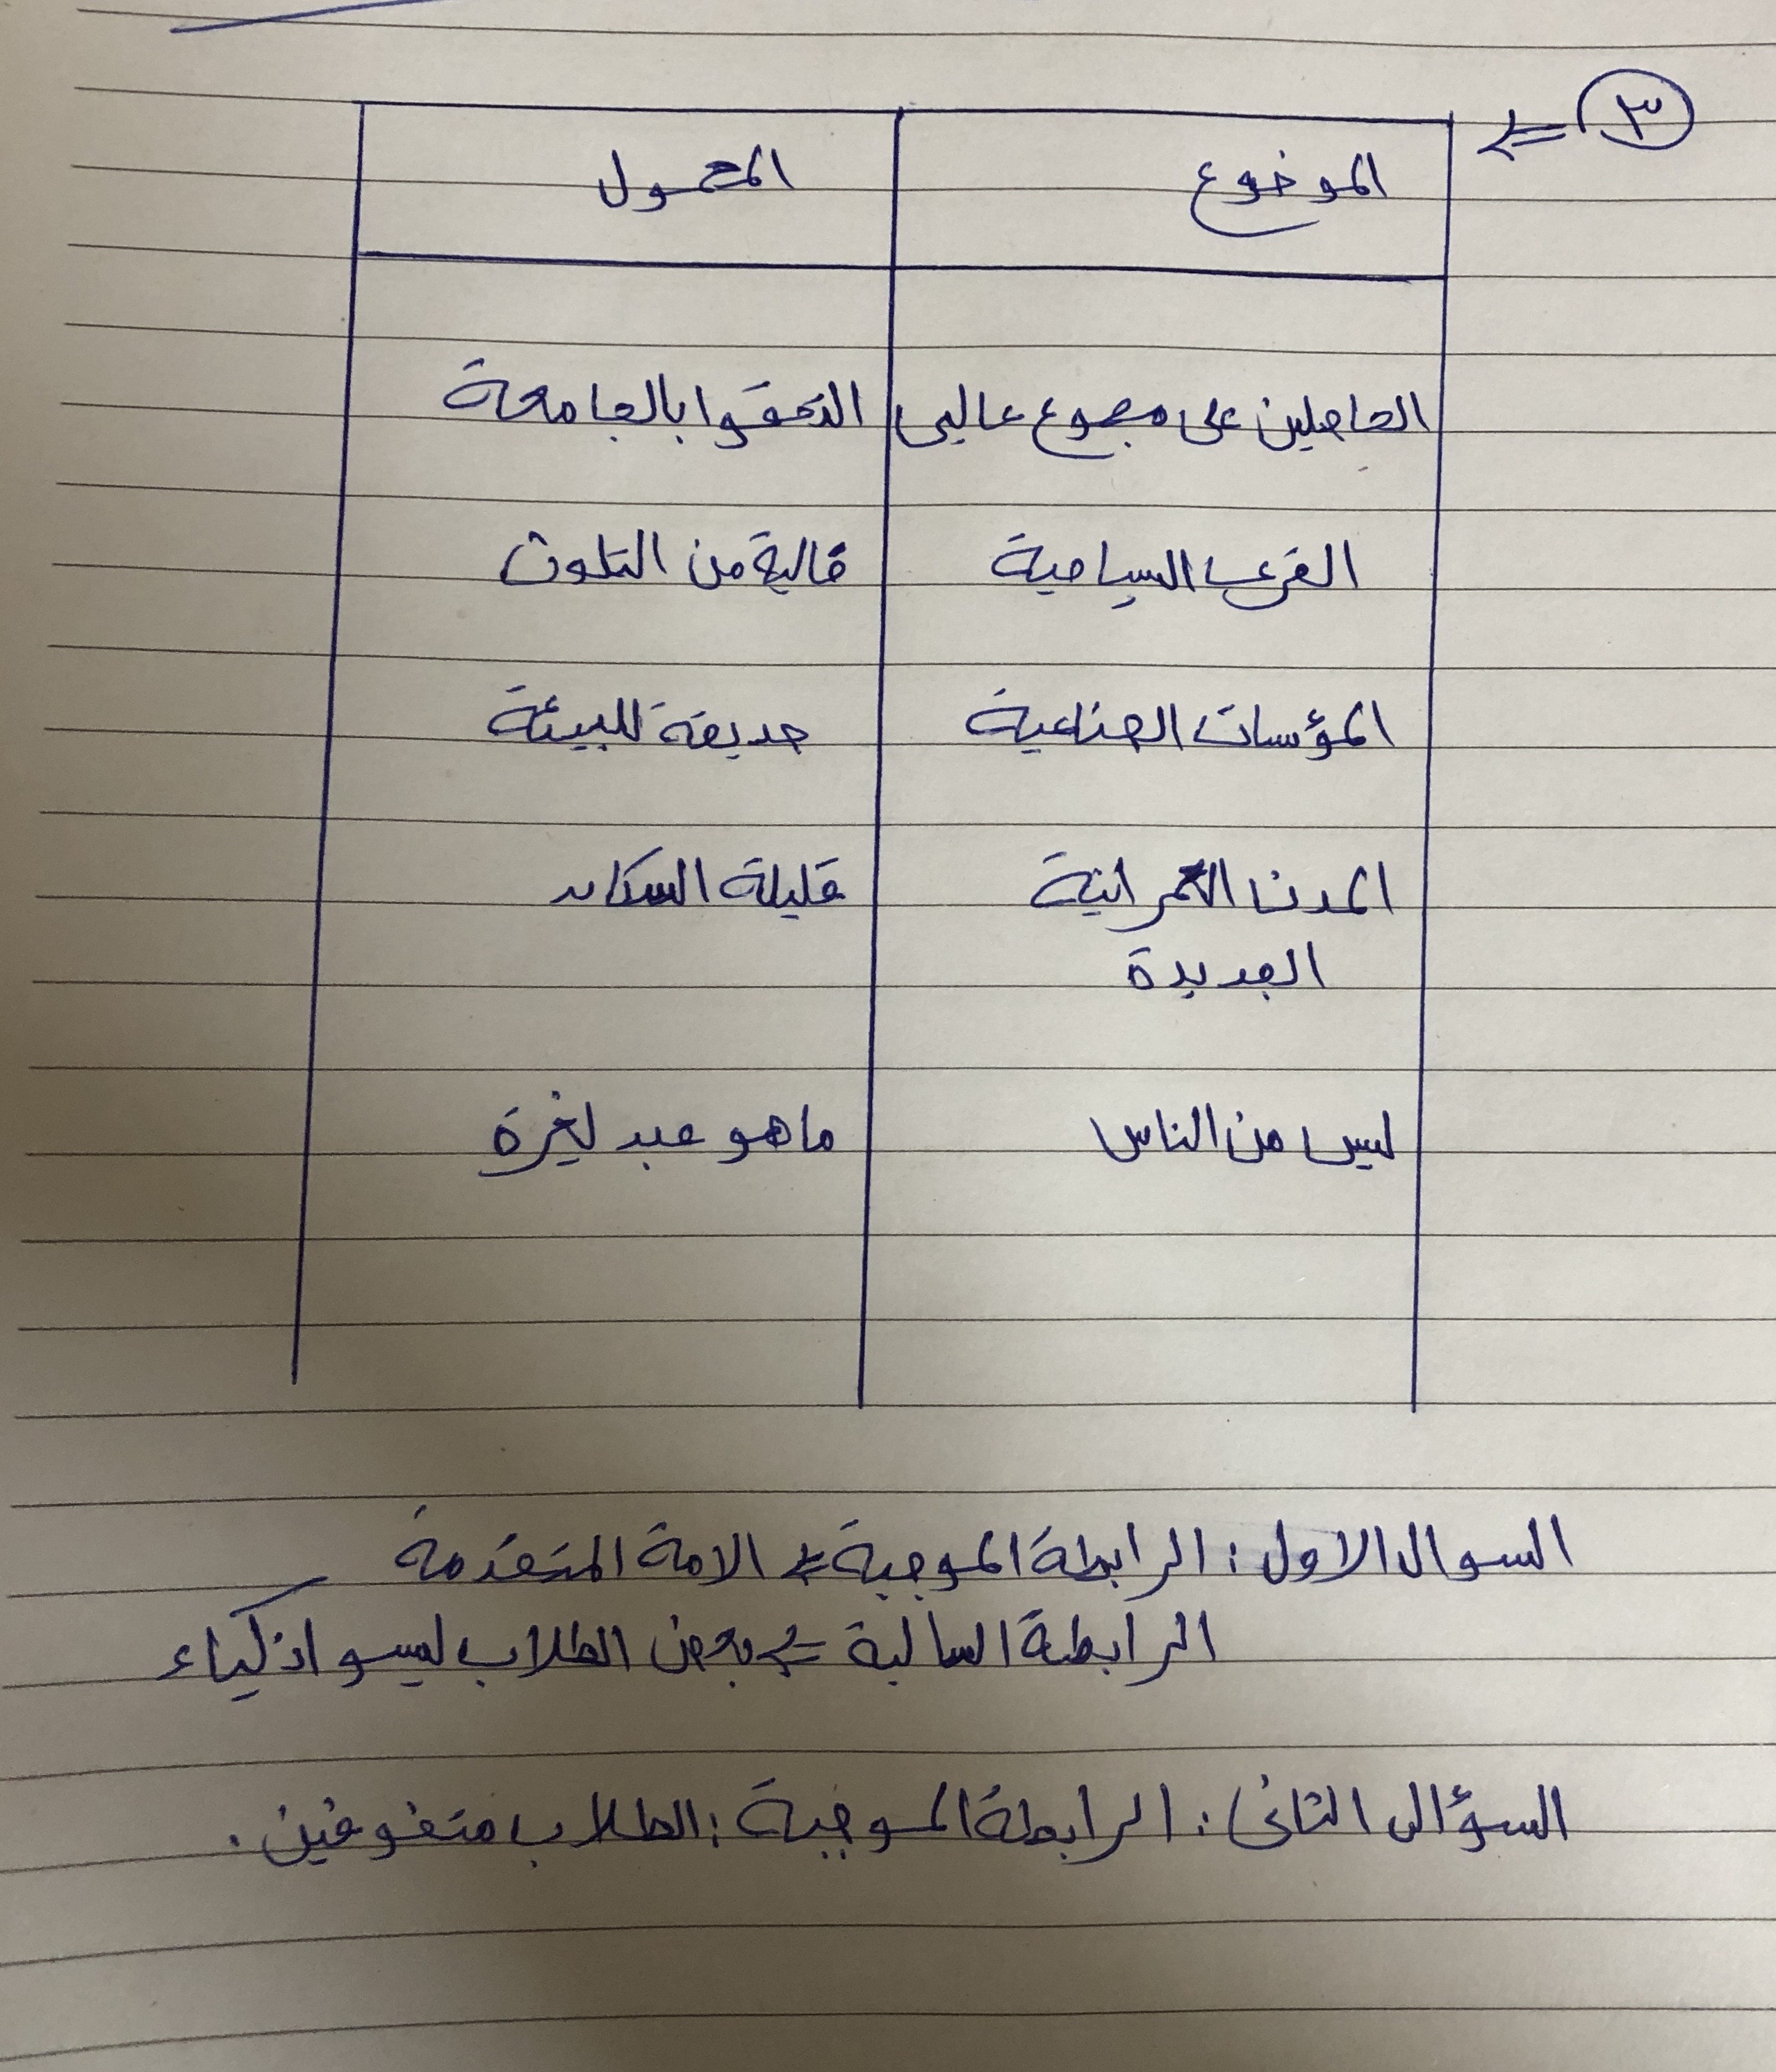 ٣ ⇐
الموضوع المحمول
الحاصلين على مجموع عالي التحقوا بالجامعة
القرى السياحية خالية من التلوث
المؤسسات الصناعية صديقة للبيئة
المدن العمرانية قليلة السكان
الجديدة
ليس من الناس ما هو عبد لغيرة
السوال الاول : الرابطة الموجبة ⇐ الامة المتقدمة
الرابطة السالبة ⇐ بعض الطلاب ليسو اذكياء
السؤال الثانى : الرابطة الموجبة : الطلاب متفوقين .